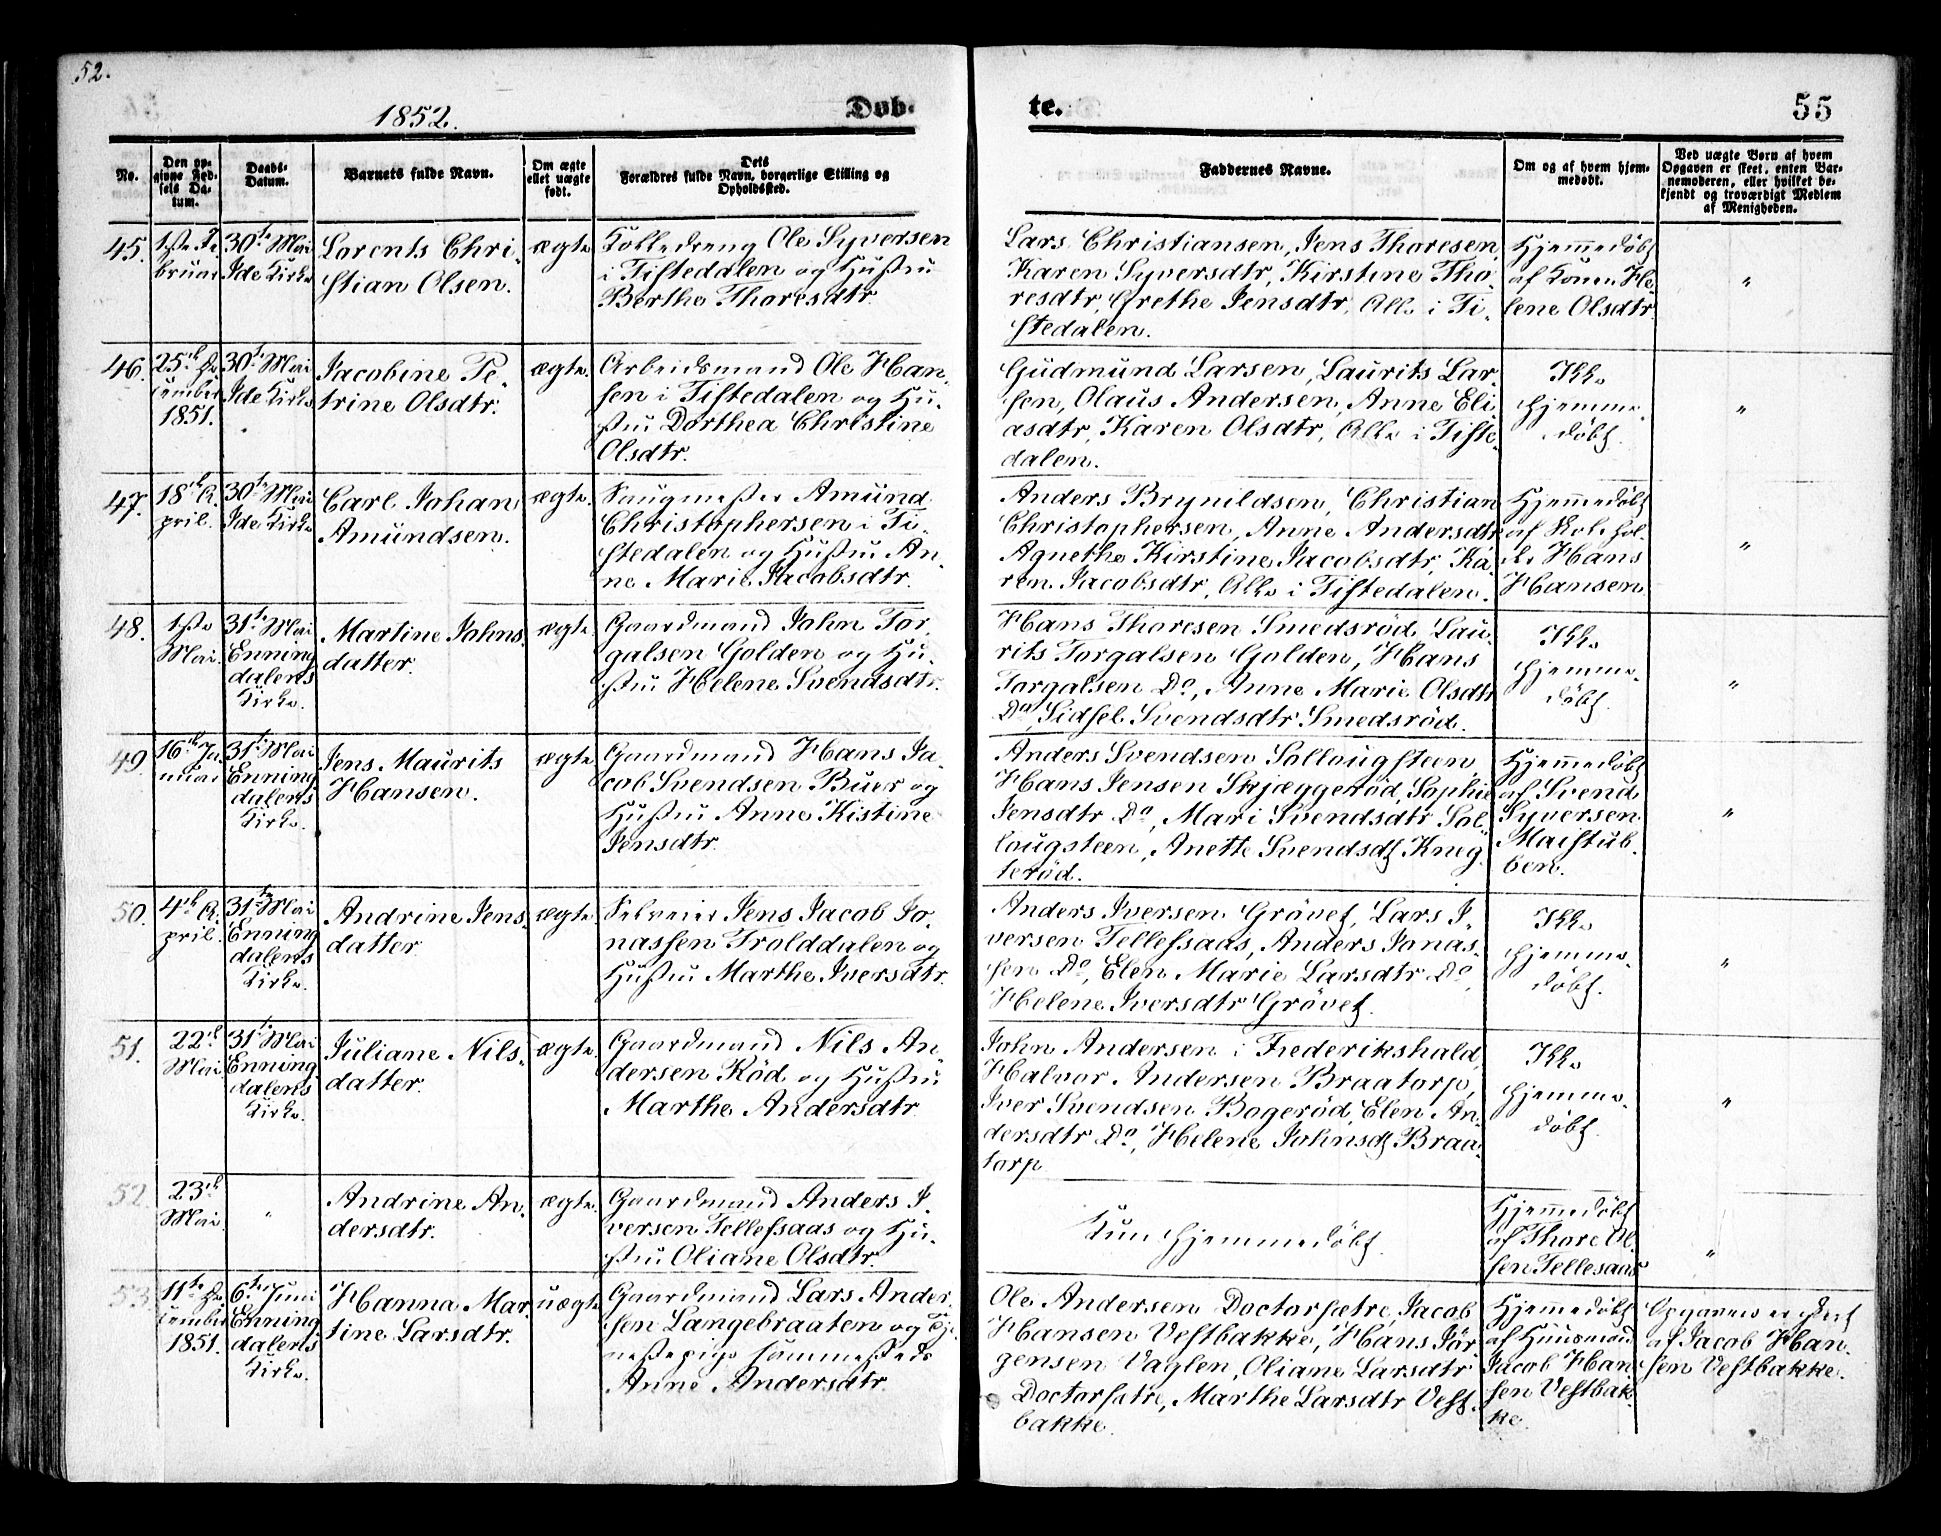 52.
1852.
Døb-
te.
55
No.
Den op-
givne Fød-
sels Da-
tum.
Daabs-
Datum.
Barnets fulde Navn.
Om ægte
ellet uægte
født.
Dets
Forældres fulde Navn, borgerlige Stilling og
Opholdssted.
Faddernes Navne.
Om og af hvem hjem-
medøbt.
Ved uægte Børn af hvem
Opgaven er skeet, enten Bar-
nemoderen, eller hvilket be-
kjendt og troværdigt Medlem
af Menigheden.
45.
1ste Fe
bruar
30te Mai
Ide Kirke
Lorents Chri-
stian Olsen.
ægte
Ole Syversen
i Tistedalen og Hustru
Berthe Thoresdtr.
Lars Christiansen, Jens Thoresen,
Karen Syversdtr, Kirstine Tho-
resdtr, Grethe Jensdtr, Alle i Ti-
stedalen.
Hjemmedøbt
af Konen He-
lene Olsdtr.
"
46.
25de De
cember
1851.
30te Mai
Ide Kirke
Jacobine Pe-
trine Olsdtr.
ægte.
Arbeidsmand Ole Han-
sen i Tistedalen og Hu-
stru Dorthea Christine
Olsdtr.
Gudmund Larsen, Laurits Lar-
sen, Olaus Andersen, Anne Eli-
asdtr, Karen Olsdtr, Alle i Tiste-
dalen.
Ikke
hjemme-
døbt.
"
47.
18de A-
pril.
30te Mai
Ide Kirke
Carl Johan
Amundsen.
ægte.
Saugmester Amund
Christophersen i Ti-
stedalen og Hustru An-
ne Marie Jacobsdtr.
Anders Brynildsen, Christian
Christophersen, Anne Andersdtr
Agnethe Kirstine Jacobsdtr, Ka-
ren Jacobsdtr, Alle i Tistedalen.
Hjemmedøbt
af Skolehol-
der Hans
Hansen
"
48.
1ste
Mai
31te Mai
Enning
dalens
Kirke.
Martine Johns-
datter.
ægte.
Gaardmand John Tor-
galsen Golden og Hu-
stru Helene Svendsdtr.
Hans Thoresen Smedsrød, Lau-
rits Torgalsen Golden, Hans
Torgalsen Do, Anne Marie Olsdtr
Do, Sidsel Svendsdtr Smedsrød.
Ikke
hjemme-
døbt.
"
49.
16de Ja
nuar
31te Mai
Enning
dalens
Kirke.
Jens Maurits
Hansen.
ægte
Gaardmand Hans Ja-
cob Svendsen Buer og
Hustru Anne Kistine
Jensdtr.
Anders Svendsen Sollaugsteen,
Hans Jensen Skjæggerød, Sophie
Jensdtr Do, Mari Svendsdtr Sol-
laugsteen, Anette Svendsdt
terød.
Hjemmedøbt
af Svend
Syversen
Maistub-
ben.
"
50.
4de A-
pril.
31te Mai
Enning
dalens
Kirke.
Andrine Jens-
datter
ægte.
Selveier Jens Jacob Jo-
nassen Trolddalen og
Hustru Marthe Iversdtr.
Anders Iversen Grøvet, Lars I-
versen Tellefsaas, Anders Jonas-
sen Do, Elen Marie Larsdtr Do,
Helene Iversdtr Grøvet.
Ikke
hjemme-
døbt.
"
51.
22de
Mai
31te Mai
Enning
dalens
Kirke.
Juliane Nils-
datter.
ægte.
Gaardmand Nils An-
dersen Rød og Hustru
Marthe Andersdtr.
John Andersen i Frederikshald,
Halvor Andersen Braatorp,
Iver Svendsen Bogerød, Elen An-
dersdtr Do, Helene Johnsdt Braa-
torp
Ikke
hjemme-
døbt.
"
52.
23de
Mai
"
Andrine An-
dersdtr.
ægte.
Gaardmand Anders I-
versen Tellefsaas og Hu-
stru Oliane Olsdtr.
Kun hjemmedøbt.
Hjemmedøbt
af Thore Ol-
sen Tellesaas
"
53.
11te De
cember
1851.
6te Juni
Enning
dalens
Kirke.
Hanna Mar-
tine Larsdtr.
uægte
Gaardmand Lars Ander-
sen Langebraaten og Tje-
nestepige sammesteds
Anne Andersdtr.
Ole Andersen Doctorsætre, Jacob
Hansen Vestbakke, Hans Jør-
gensen Vaglen, Oliane Larsdtr
Doctorsætre, Marthe Larsdtr Vest-
bakke.
Hjemmedøbt
af Huusmand
Jacob Han-
sen Vestbak-
ke.
Opgaven er skeet
af Jacob Han-
sen Vestbakke.